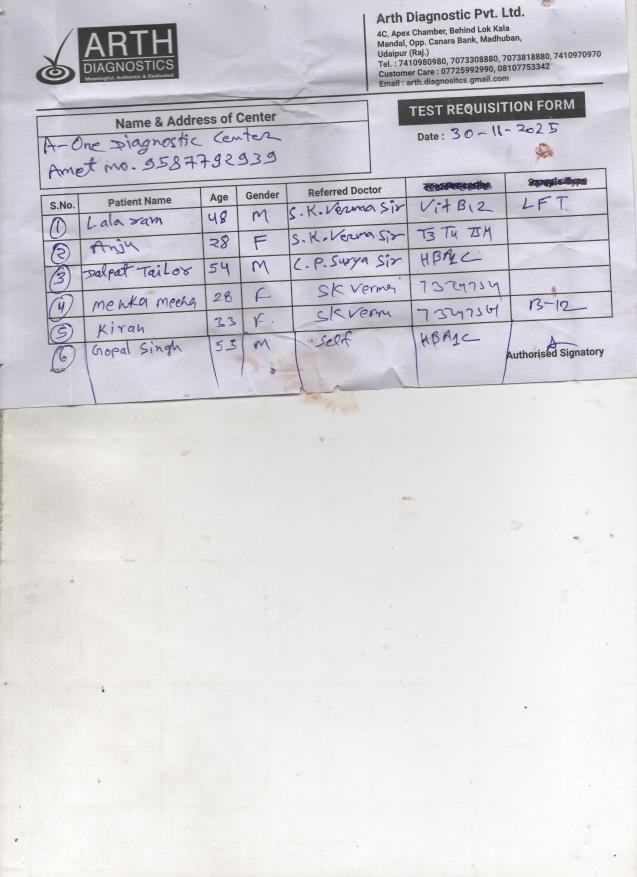 ARTH
DIAGNOSTICS
Meaningful, Authentic & Dedicated
Arth Diagnostic Pvt. Ltd.
4C, Apex Chamber, Behind Lok Kala
Mandal, Opp. Canara Bank, Madhuban,
Udaipur (Raj.)
Tel. : 7410980980, 7073308880, 7073818880, 7410970970
Customer Care : 07725992990, 08107753342
Email : arth.diagnositcs.gmail.com
Name & Address of Center
A-One Diagnostic Center
Amet mo. 9587792939
TEST REQUISITION FORM
Date : 30-11-2025
S.No. Patient Name Age Gender Referred Doctor
1 Lala ram 48 M S.K. Verma Sir Vit B12 LFT
2 Anju 28 F S.K. Verma Sir T3 T4 TSH
3 Dalpat Tailor 54 M C.P. Surya Sir HBA1C
4 Menka meena 28 F SK Verma T3T4TSH
5 Kiran 33 F. SK Verma T3T4TSH B-12
6 Gopal Singh 53 M Self HBA1C
Authorised Signatory